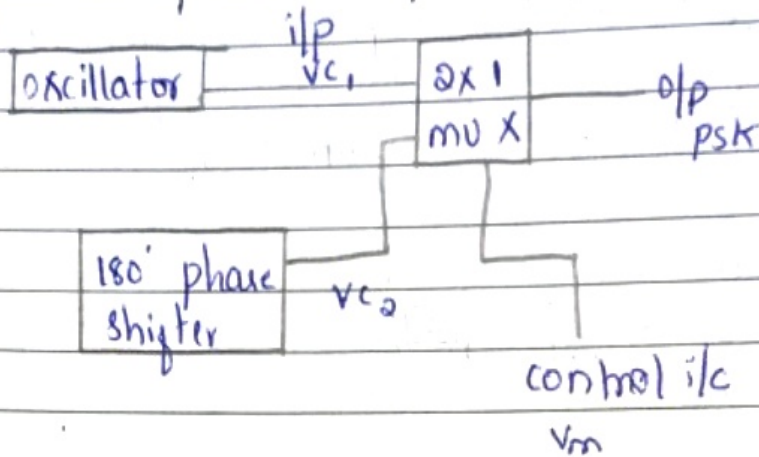 i/p
oscillator
VC1
2x1
mU X
o/p
PSK
180° phase
shifter
VC2
control i/c
Vm